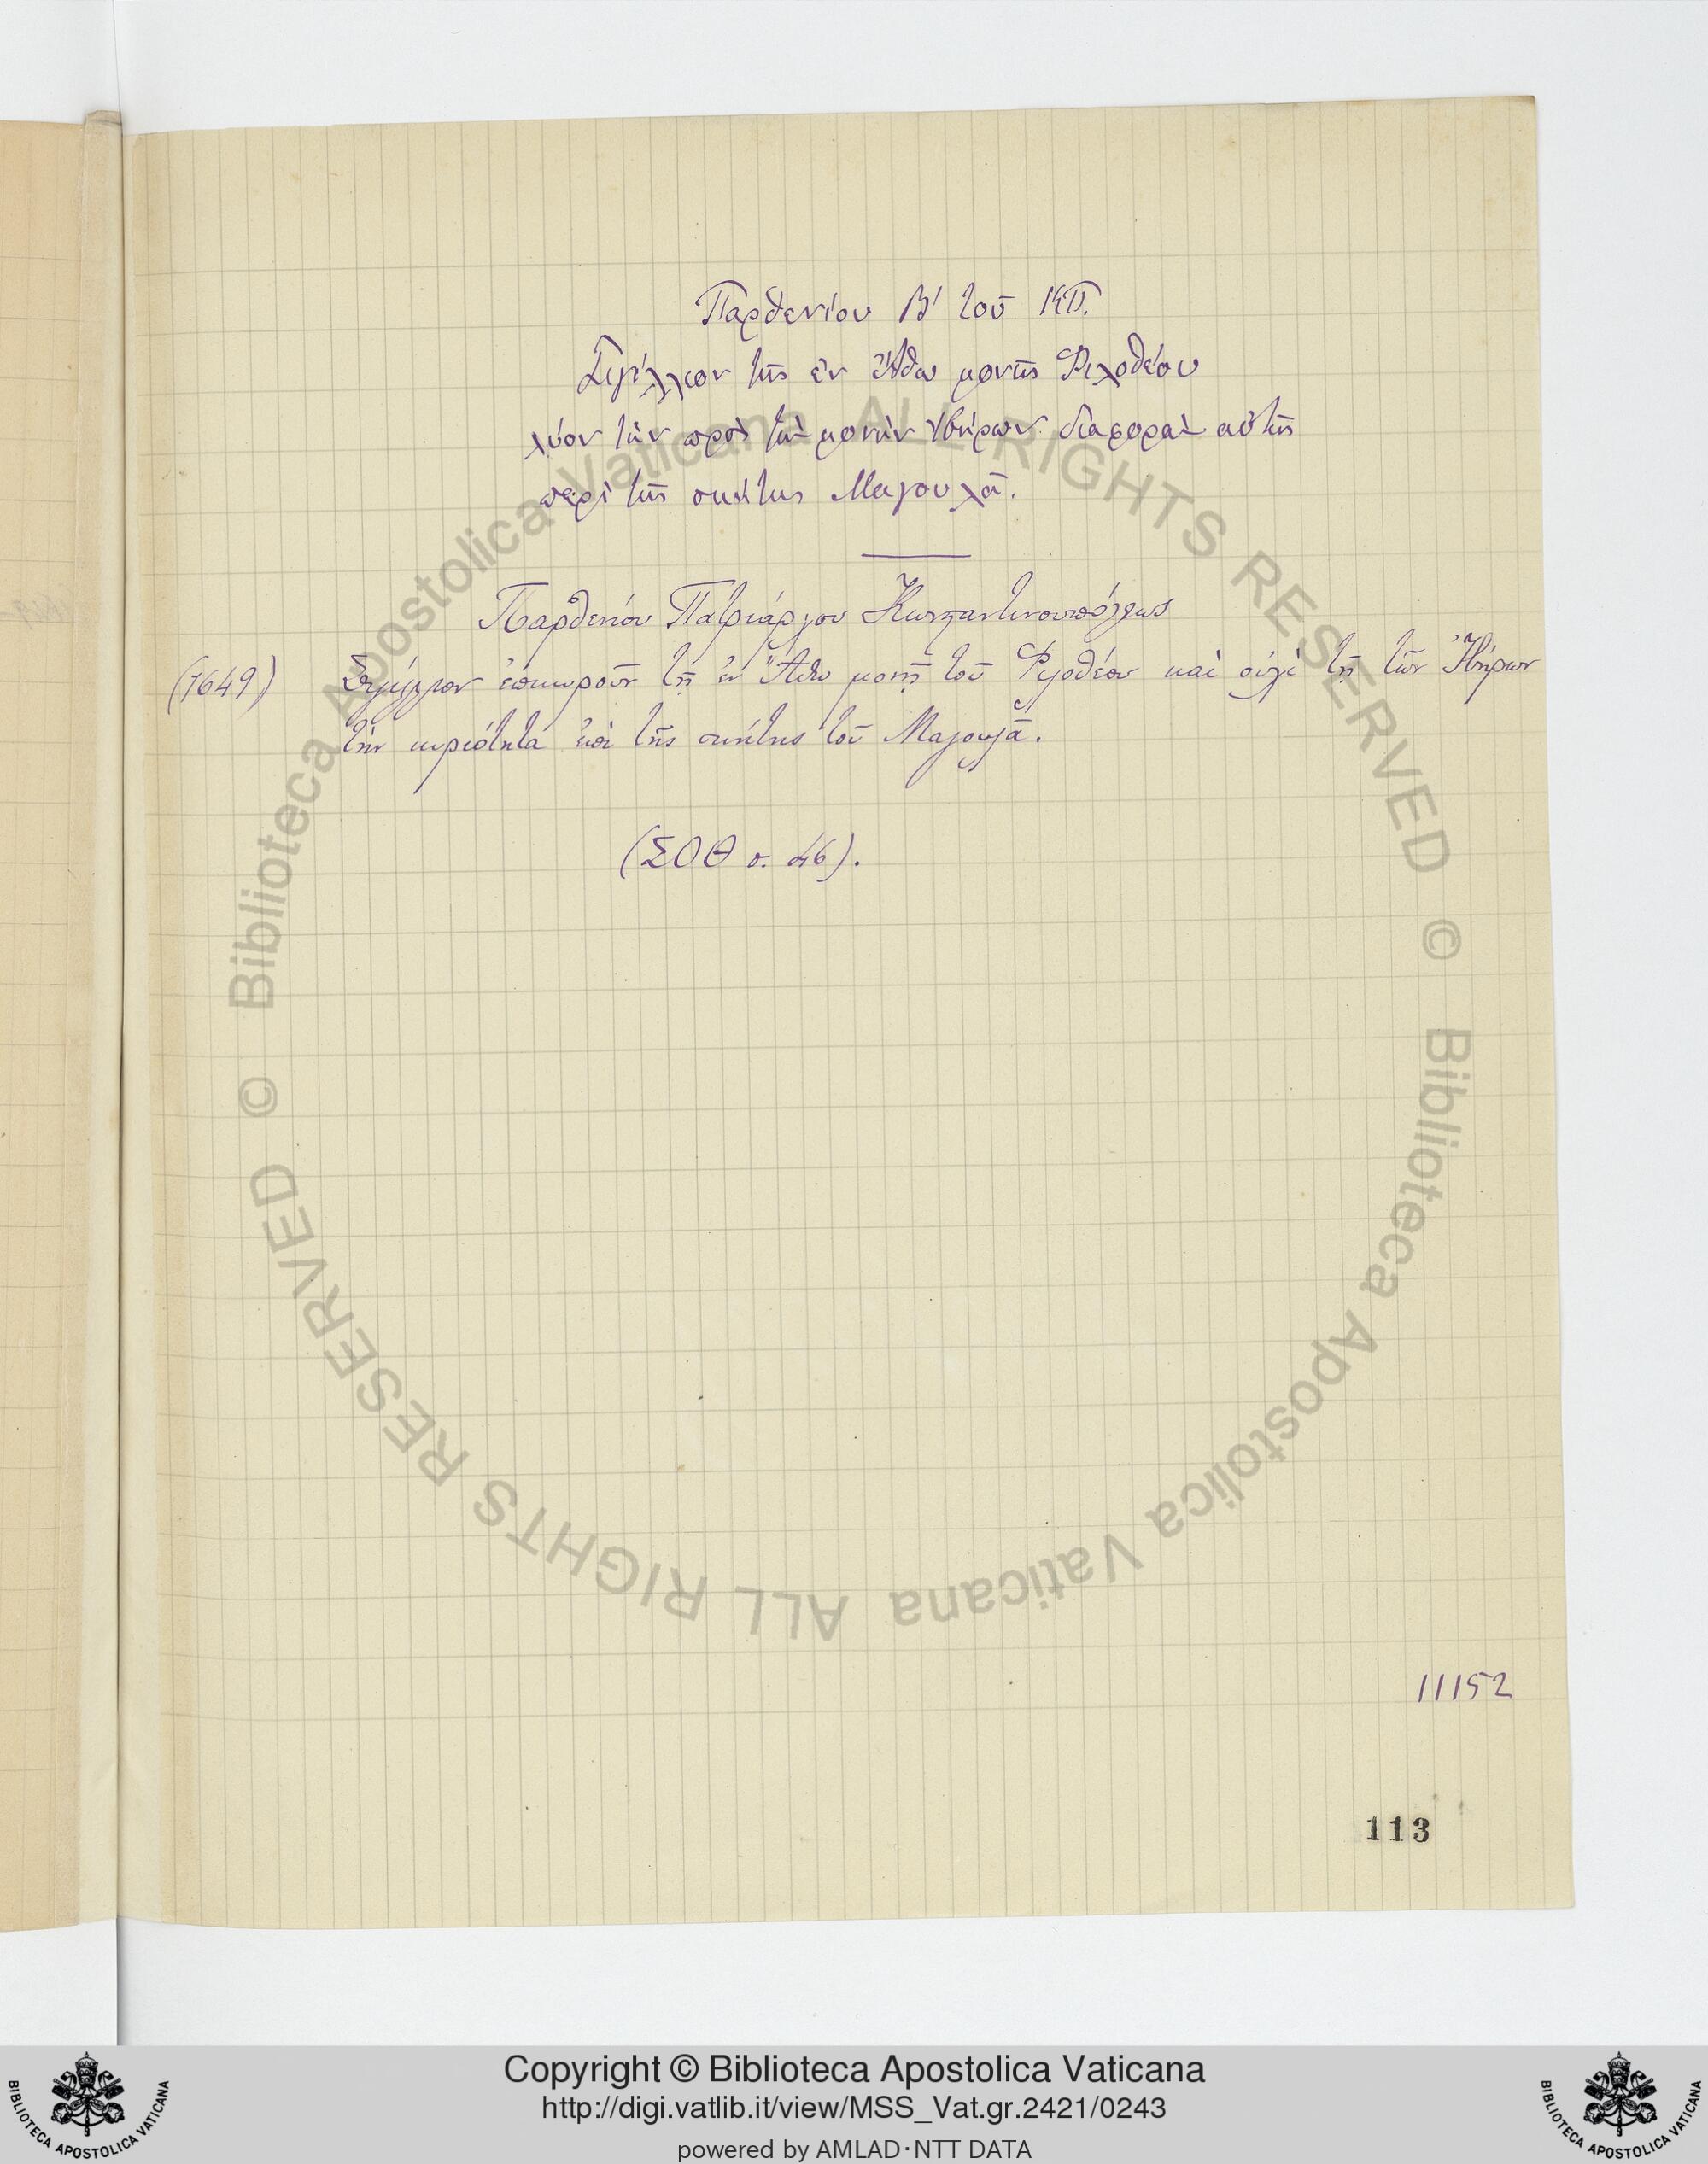 Παρθενίου Β' τοῦ ΚΠ.
Σιγίλλιον τῆς ἐν Ἄθω μονῆς Φιλοθέου
λύον τὴν πρὸς τὴν μονὴν Ἰβήρων διαφορὰν αὐτῆς
περὶ τῆς σκήτης Μαγουλᾶ.
Παρθενίου Πατριάρχου Κωνσταντινουπόλεως
(1649) Σιγίλλιον ἐπικυροῦν τῇ ἐν Ἄθω μονῇ τοῦ Φιλοθέου καὶ οὐχὶ τῇ τῶν Ἰβήρων
τὴν κυριότητα ἐπὶ τῆς σκήτης τοῦ Μαγουλᾶ.
(ΣΟΘ σ. 46).
11152
113
© Biblioteca Apostolica Vaticana ALL RIGHTS RESERVED
© Biblioteca Apostolica Vaticana ALL RIGHTS RESERVED
Copyright © Biblioteca Apostolica Vaticana
http://digi.vatlib.it/view/MSS_Vat.gr.2421/0243
powered by AMLAD·NTT DATA
BIBLIOTECA APOSTOLICA VATICANA
BIBLIOTECA APOSTOLICA VATICANA